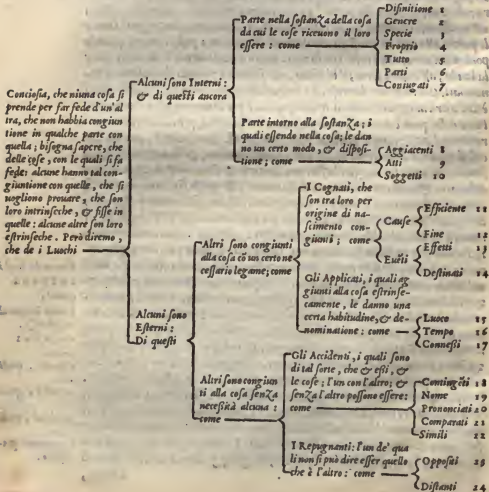 Conciosia, che niuna cosa si
prende per far fede d'un'al
tra, che non habbia congiun
tione in qualche parte con
quella; bisogna sapere, che
delle cose, con le quali si fa
fede: alcune hanno tal con
giuntione con quelle, che si
uogliono prouare, che son
loro intrinseche, & fisse in
quelle: alcune altre son loro
estrinseche. Però diremo,
che de i Luochi
Alcuni sono Interni:
& di questi ancora
Parte nella sostanza della cosa
da cui le cose riceuono il loro
essere: come
Difinitione 1
Genere 2
Specie 3
Proprio 4
Tutto 5
Parti 6
Coniugati 7
Parte intorno alla sostanza; i
quali essendo nella cosa; le dan
no un certo modo, & disposi-
tione; come
Aggiacenti 8
Atti 9
Soggetti 10
Alcuni sono
Esterni:
Di questi
Altri sono congiunti
alla cosa cō un certo ne
cessario legame; come
I Cognati, che
son tra loro per
origine di na-
scimento con-
giunti; come
Cause
Efficiente 11
Fine 12
Euēti
Effetti 13
Destinati 14
Gli Applicati, i quali ag
giunti alla cosa estrinse-
camente, le danno una
certa habitudine, & de-
nominatione: come
Luoco 15
Tempo 16
Connessi 17
Altri sono congiun
ti alla cosa senza
necessità alcuna:
come
Gli Accidenti, i quali sono
di tal sorte, che & essi, &
le cose; l'un con l'altro; &
senza l'altro possono essere:
come
Contingēti 18
Nome 19
Prononciati 20
Comparati 21
Simili 22
I Repugnanti: l'un de' qua
li non si può dire esser quello
che è l'altro: come
Oppositi 23
Distanti 24